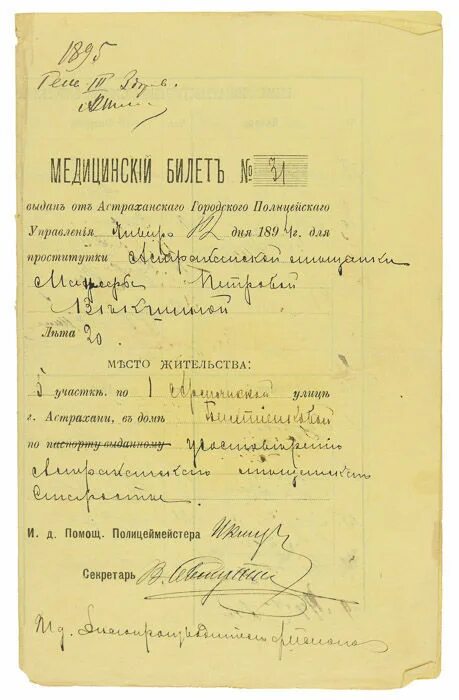 1895
МЕДИЦИНСКІЙ БИЛЕТЪ № 31
выданъ отъ Астраханскаго Городского Полицейскаго
Управленія Января 12 дня 1894 г. для
проститутки Астраханской мѣщанки
Петровой
Лѣта 20
МѢСТО ЖИТЕЛЬСТВА:
5 участкѣ по 1 улицѣ
г. Астрахани, въ домѣ
по паспорту выданному удостовѣренію
Астраханскаго мѣщанскаго
Старосты
И. д. Помощ. Полицеймейстера
Секретарь В.
И.д. Дѣлопроизводителя